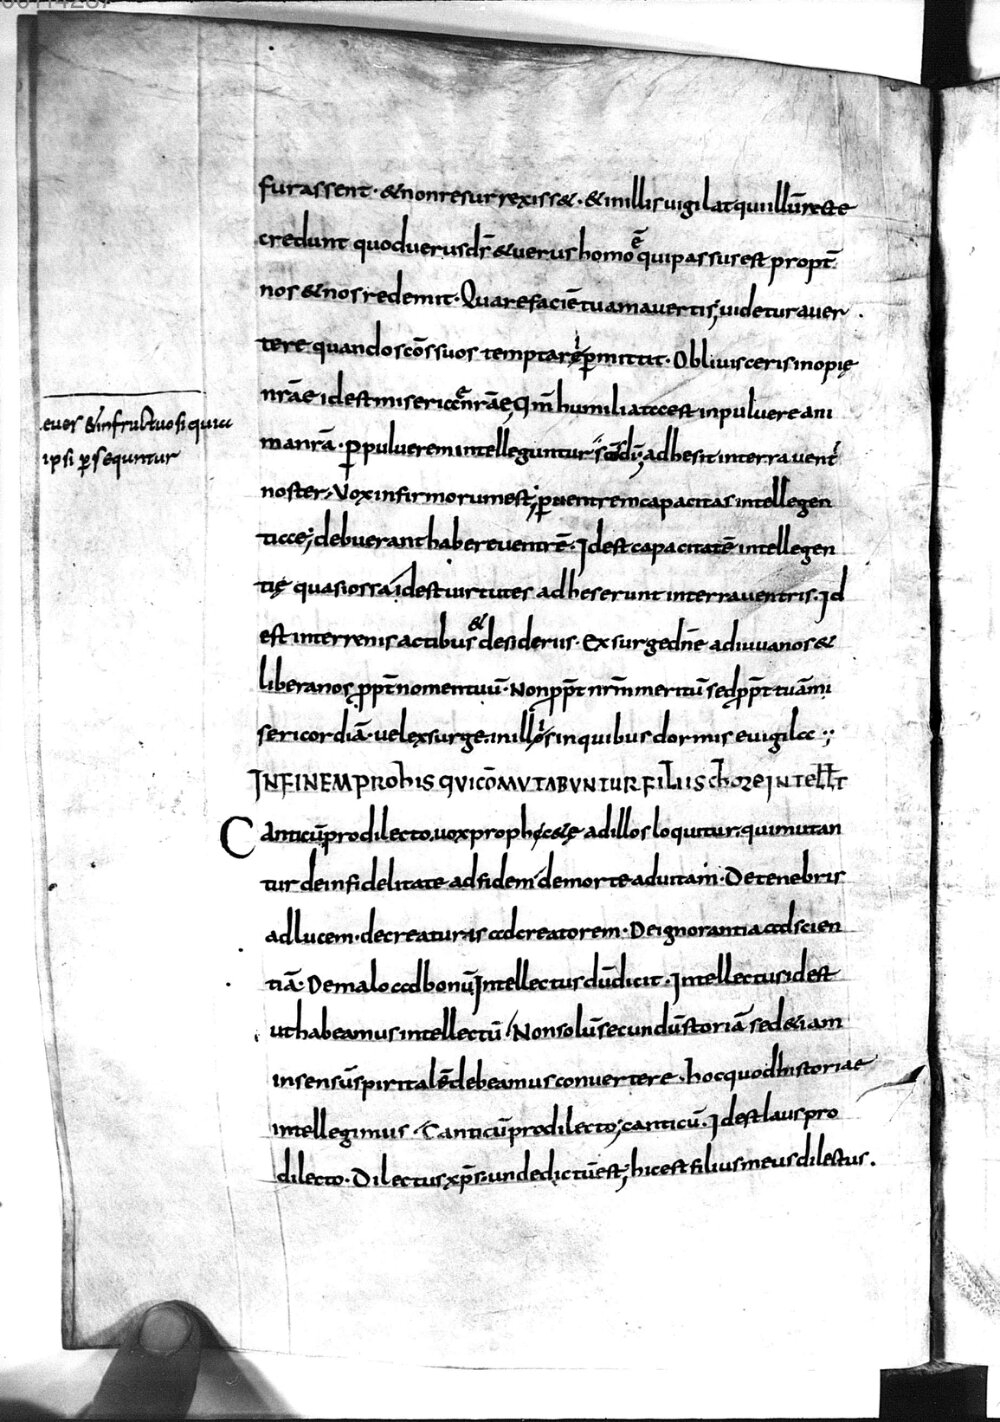 furassent · & nonresurrexiss& · & inillis uigilat qui illū recte
credunt quod uerus d̄s & uerus homo ē qui passus est propt̄
nos & nos redemit · Quare faciē tuam auertis; uidetur auer
tere quando sc̄os suos temptari p̄mittit · Obliuisceris inopię
nr̄ae id est misericc̄e nr̄ae; Qm̄ humiliata est in puluere ani
ma nr̄a · P puluerem intelleguntur sc̄i dī; adhesit in terra uent̄
noster, Vox infirmorum est; p uentrem capacitas intellegen
tiae; debuerant habere uentrē · Idest capacitatē intellegen
tię quasi ossa idest uirtutes adheserunt in terra uentris · Id
est in terrenis actibus & desideriis · Exsurge dn̄e adiuua nos &
libera nos ppt̄ nomen tuū · Non ppt̄ nrm̄ meritū sed ppt̄ tuā mi
sericordiā · uel exsurge in illos in quibus dormis euigila ;
euos & infructuosi quia
ipsi psequntur
IN FINEM PRO HIS QVI COM̄VTABVNTUR FILIIS chore INTELLT
Canticū pro dilecto · uox prophetae ad illos loquitur · qui mutan
tur de infidelitate ad fidem de morte ad uitam · De tenebris
ad lucem · de creaturis ad creatorem · De ignorantia ad scien
tiā · De malo ad bonū Intellectus dūdicit · Intellectus idest
ut habeamus intellectū / Non solū secundū storiā sed & iam
in sensū spiritalē debeamus conuertere · hoc quod historiae
intellegimus · Canticū pro dilecto; canticū · Idest laus pro
dilecto · Dilectus xp̄s · unde dictū est; hic est filius meus dilectus .